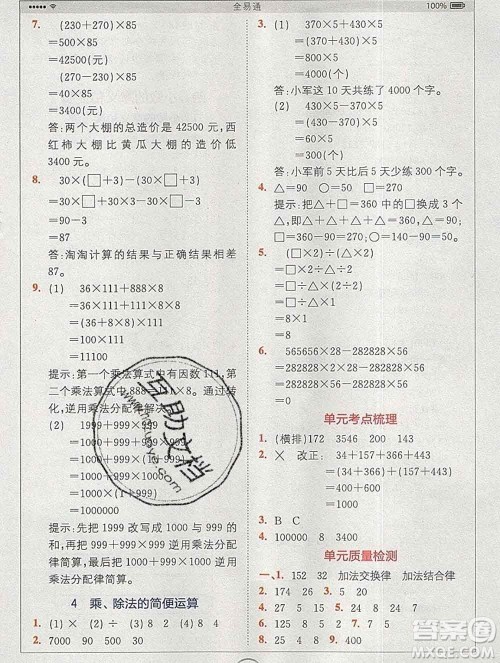 全易通
100%
7. (230+270)×85
=500×85
=42500(元)
(270-230)×85
=40×85
=3400(元)
答:两个大棚的总造价是 42500 元,西
红柿大棚比黄瓜大棚的造价低
3400 元。
8. 30×(□+3)-(30×□+3)
=30×□+30×3-30×□-3
=90-3
=87
答:淘淘计算的结果与正确结果相差
87。
9. (1) 36×111+888×8
=36×111+111×8×8
=(36+8×8)×111
=100×111
=11100
提示:第一个乘法算式中有因数 111,第
二个乘法算式中
×8。通过转
化,逆用乘法分配律解决
(2) 1999+999×999
=1000+999+999×999
=1000+999×(999+1)
=1000+999×1000
=1000×(999+1)
=1000×1000
=1000000
提示:先把 1999 改写成 1000 与 999 的
和,再对 999+999×999 逆用乘法分配
律简算,最后对 1000+999×1000 逆用
乘法分配律简算。
4 乘、除法的简便运算
1. (1) × (2) ÷ (3) ÷ (4) ÷
2. 7000 90 500 30
3. (1) 370×5+430×5
=(370+430)×5
=800×5
=4000(个)
答:小军这 10 天共练了 4000 个字。
(2) 430×5-370×5
=(430-370)×5
=60×5
=300(个)
答:小军前 5 天比后 5 天少练 300 个字。
4. △=90 ○=60 □=270
提示:把□+△=360 中的□换成 3 个
△,即△+△+△+△=360。
5. (□×2)÷(△×2)
=□×2÷△÷2
=□÷△×(2÷2)
=□÷△
6. 565656×28-282828×56
=282828×2×28-282828×56
=282828×56-282828×56
=0
单元考点梳理
1. (横排)172 3546 200 143
2. × 改正: 34+157+366+443
=(34+366)+(157+443)
=400+600
=1000
3. B C
4. 100000 8 34 8 3400
单元质量检测
一、1. 152 32 加法交换律 加法结合律
2. 174 26 3. 20 5
4. 125 8 17 5. > < =
互助文档
答案圈
MXQE.COM